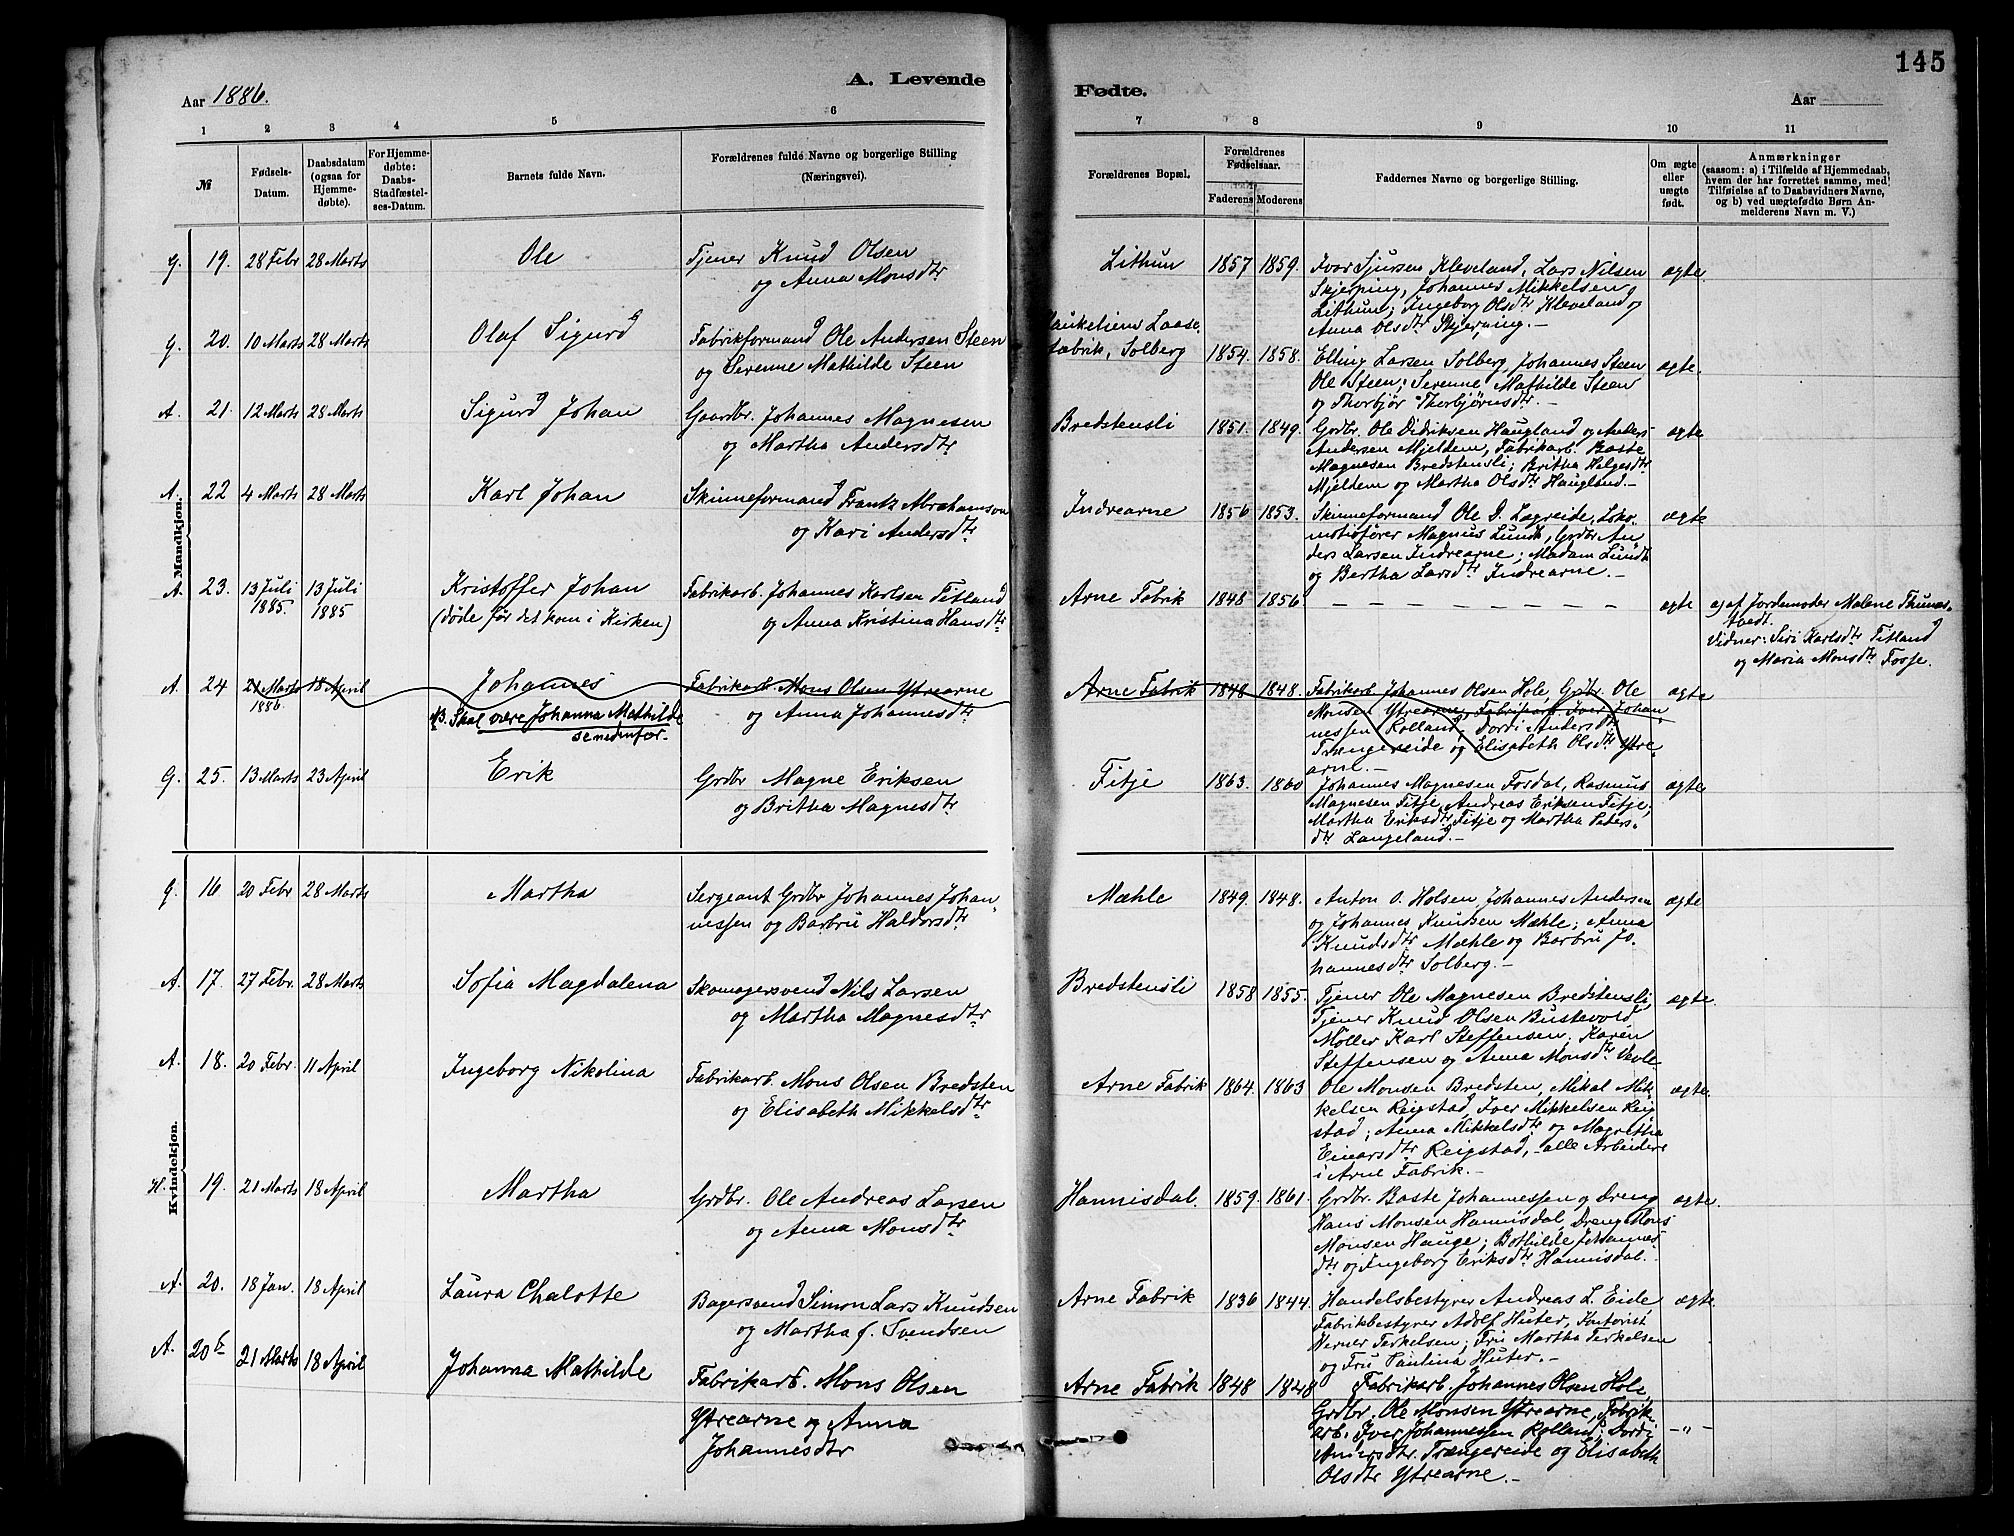 145
Aar 1886.
A. Levende
Fødte.
Aar
1 2 3 4 5 6 7 8 9 10 11
№
Fødsels-
Datum.
Daabsdatum
(ogsaa for
Hjemme-
døbte).
For Hjemme-
døbte:
Daabs-
Stadfæstel-
ses-Datum.
Barnets fulde Navn.
Forældrenes fulde Navne og borgerlige Stilling
(Næringsvei).
Forældrenes Bopæl.
Forældrenes
Fødselsaar.
Faderens Moderens
Faddernes Navne og borgerlige Stilling.
Om ægte
eller
uægte
født.
Anmærkninger
(saasom: a) i Tilfælde af Hjemmedaab,
hvem der har forrettet samme, med
Tilføielse af to Daabsvidners Navne,
og b) ved uægtefødte Børn An-
melderens Navn m. V.)
Mandkjøn.
G. 19. 28 Febr 28 Marts Ole
Tjener Knud Olsen
og Anna Monsdtr
Lithun 1857 1859.
Ivar Sjursen Kleveland, Lars Nilsen
Skjerping, Johannes Mikkelsen
Lithun; Ingeborg Olsdtr Kleveland og
Anna Olsdtr Skjerping.–
ægte
G. 20. 10 Marts 28 Marts Olaf Sigurd
Fabrikformand Ole Andersen Steen
og Serenne Mathilde Steen
Laase
fabrik, Solberg 1854. 1858.
Elling Larsen Solberg, Johannes Steen
Ole Steen; Serenne Mathilde Steen
og Thorbjør Thorbjørnsdtr.–
ægte
A. 21. 12 Marts 28 Marts Sigurd Johan
Gaardbr. Johannes Magnesen
og Martha Andersdtr
Bredstensli 1851. 1849.
Grdbr. Ole Didriksen Haugland og Anders
Andersen Mjeldem, Fabrikarb. Baste
Magnesen Bredstensli; Britha Helgesdtr
Mjeldem og Martha Olsdtr Haugland.–
ægte
A. 22 4 Marts 28 Marts Karl Johan
Skinneformand Frantz Abrahamson
og Kari Andersdtr
Indrearne 1856 1853.
Skinneformand Ole D. Lagreide, Loko-
motivfører Magnus Lundh, Grdbr An
ders Larsen Indrearne; Madam Lundh
og Bertha Larsdtr Indrearne.–
ægte
A. 23. 13 Juli
1885. 13 Juli
1885 Kristoffer Johan
(døde før det kom i Kirken)
Fabrikarb. Johannes Karlsen Titland
og Anna Kristina Hansdtr
Arne Fabrik 1848 1856
– – – – – – – –
ægte
Jordemoder Malene
Vidner: Siri Karlsdtr Titland
og Maria Monsdtr Fosje.
A. 24 21 Marts
1886 18 April Johannes
NB. Skal være Johanna Mathilde
se nedenfor.
Fabrikarb. Mons Olsen Ytrearne
og Anna Johannesdtr
Arne Fabrik 1848 1848.
Fabrikarb Johannes Olsen Hole, Grdbr. Ole
Monsen Ytrearne, Fabrikarb. Iver Johan-
nessen Rolland; Dordi Andersdtr
Trængereide og Elisabeth Olsdtr Ytre
arne.–
ægte
G. 25. 13 Marts 23 April Erik
Grdbr Magne Eriksen
og Britha Magnesdtr
Fitje 1863. 1860
Johannes Magnesen Fordal, Rasmus
Magnesen Fitje, Andreas Eriksen Fitje;
Martha Eriksdtr Fitje og Martha Peders-
dtr Langeland.–
ægte
Kvindekjøn.
G. 16 20 Febr 28 Marts Martha
Sergeant Grdbr Johannes Johan-
nessen og Barbru Haldorsdtr
Mæhle 1849. 1848.
Anton O. Holsen, Johannes Andersen
og Johannes Knudsen Mæhle; Anna
Knudsdtr Mæhle og Barbru Jo-
hannesdtr Solberg.–
ægte
A. 17. 27 Febr. 28 Marts Sofia Magdalena
Skomagersvend Nils Larsen
og Martha Magnesdtr
Bredstensli 1858 1855.
Tjener Ole Magnesen Bredstensli,
Tjener Knud Olsen Bustevold
Møller Karl Steffensen; Karen
Steffensen og Anna Monsdtr
ægte.
A. 18. 20 Febr. 11 April Ingeborg Nikolina
Fabrikarb. Mons Olsen Bredsten
og Elisabeth Mikkelsdtr
Arne Fabrik 1864. 1863
Ole Monsen Bredsten, Mikal Mik-
kelsen Reigstad, Iver Mikkelsen Reig
stad; Anna Mikkelsdtr og Magretha
Einarsdtr Reigstad, – alle Arbeidere
i Arne Fabrik.–
ægte.
H. 19. 21 Marts 18 April Martha
Grdbr. Ole Andreas Larsen
og Anna Monsdtr
Hannisdal. 1859. 1861.
Grdbr. Baste Johannessen og Dreng
Hans Monsen Hannisdal, Dreng Mons
Monsen Hauge; Bothilde Johannes
dtr og Ingeborg Eriksdtr Hannisdal.–
ægte.
A. 20. 18 Jan. 18 April Laura Chalotte
Bagersvend Simon Lars Knudsen
og Martha f. Svendsen
Arne Fabrik 1836 1844.
Handelsbestyrer Andreas L. Eide
Fabrikbestyrer Adolf Huter, Kontorist
Werner Terkelsen; Fru Martha Terkelsen
og Fru Paulina Huter.–
ægte.
A. 20b 21 Marts 18 April Johanna Mathilde
Fabrikarb. Mons Olsen
Ytrearne og Anna
Johannesdtr
Arne Fabrik 1848 1848
Fabrikarb. Johannes Olsen Hole,
Grdbr. Ole Monsen Ytrearne, Fabrik-
arb. Iver Johannessen Rolland; Dordi
Andersdtr. Trængereide og Elisabeth
Olsdtr Ytrearne.–
–"–